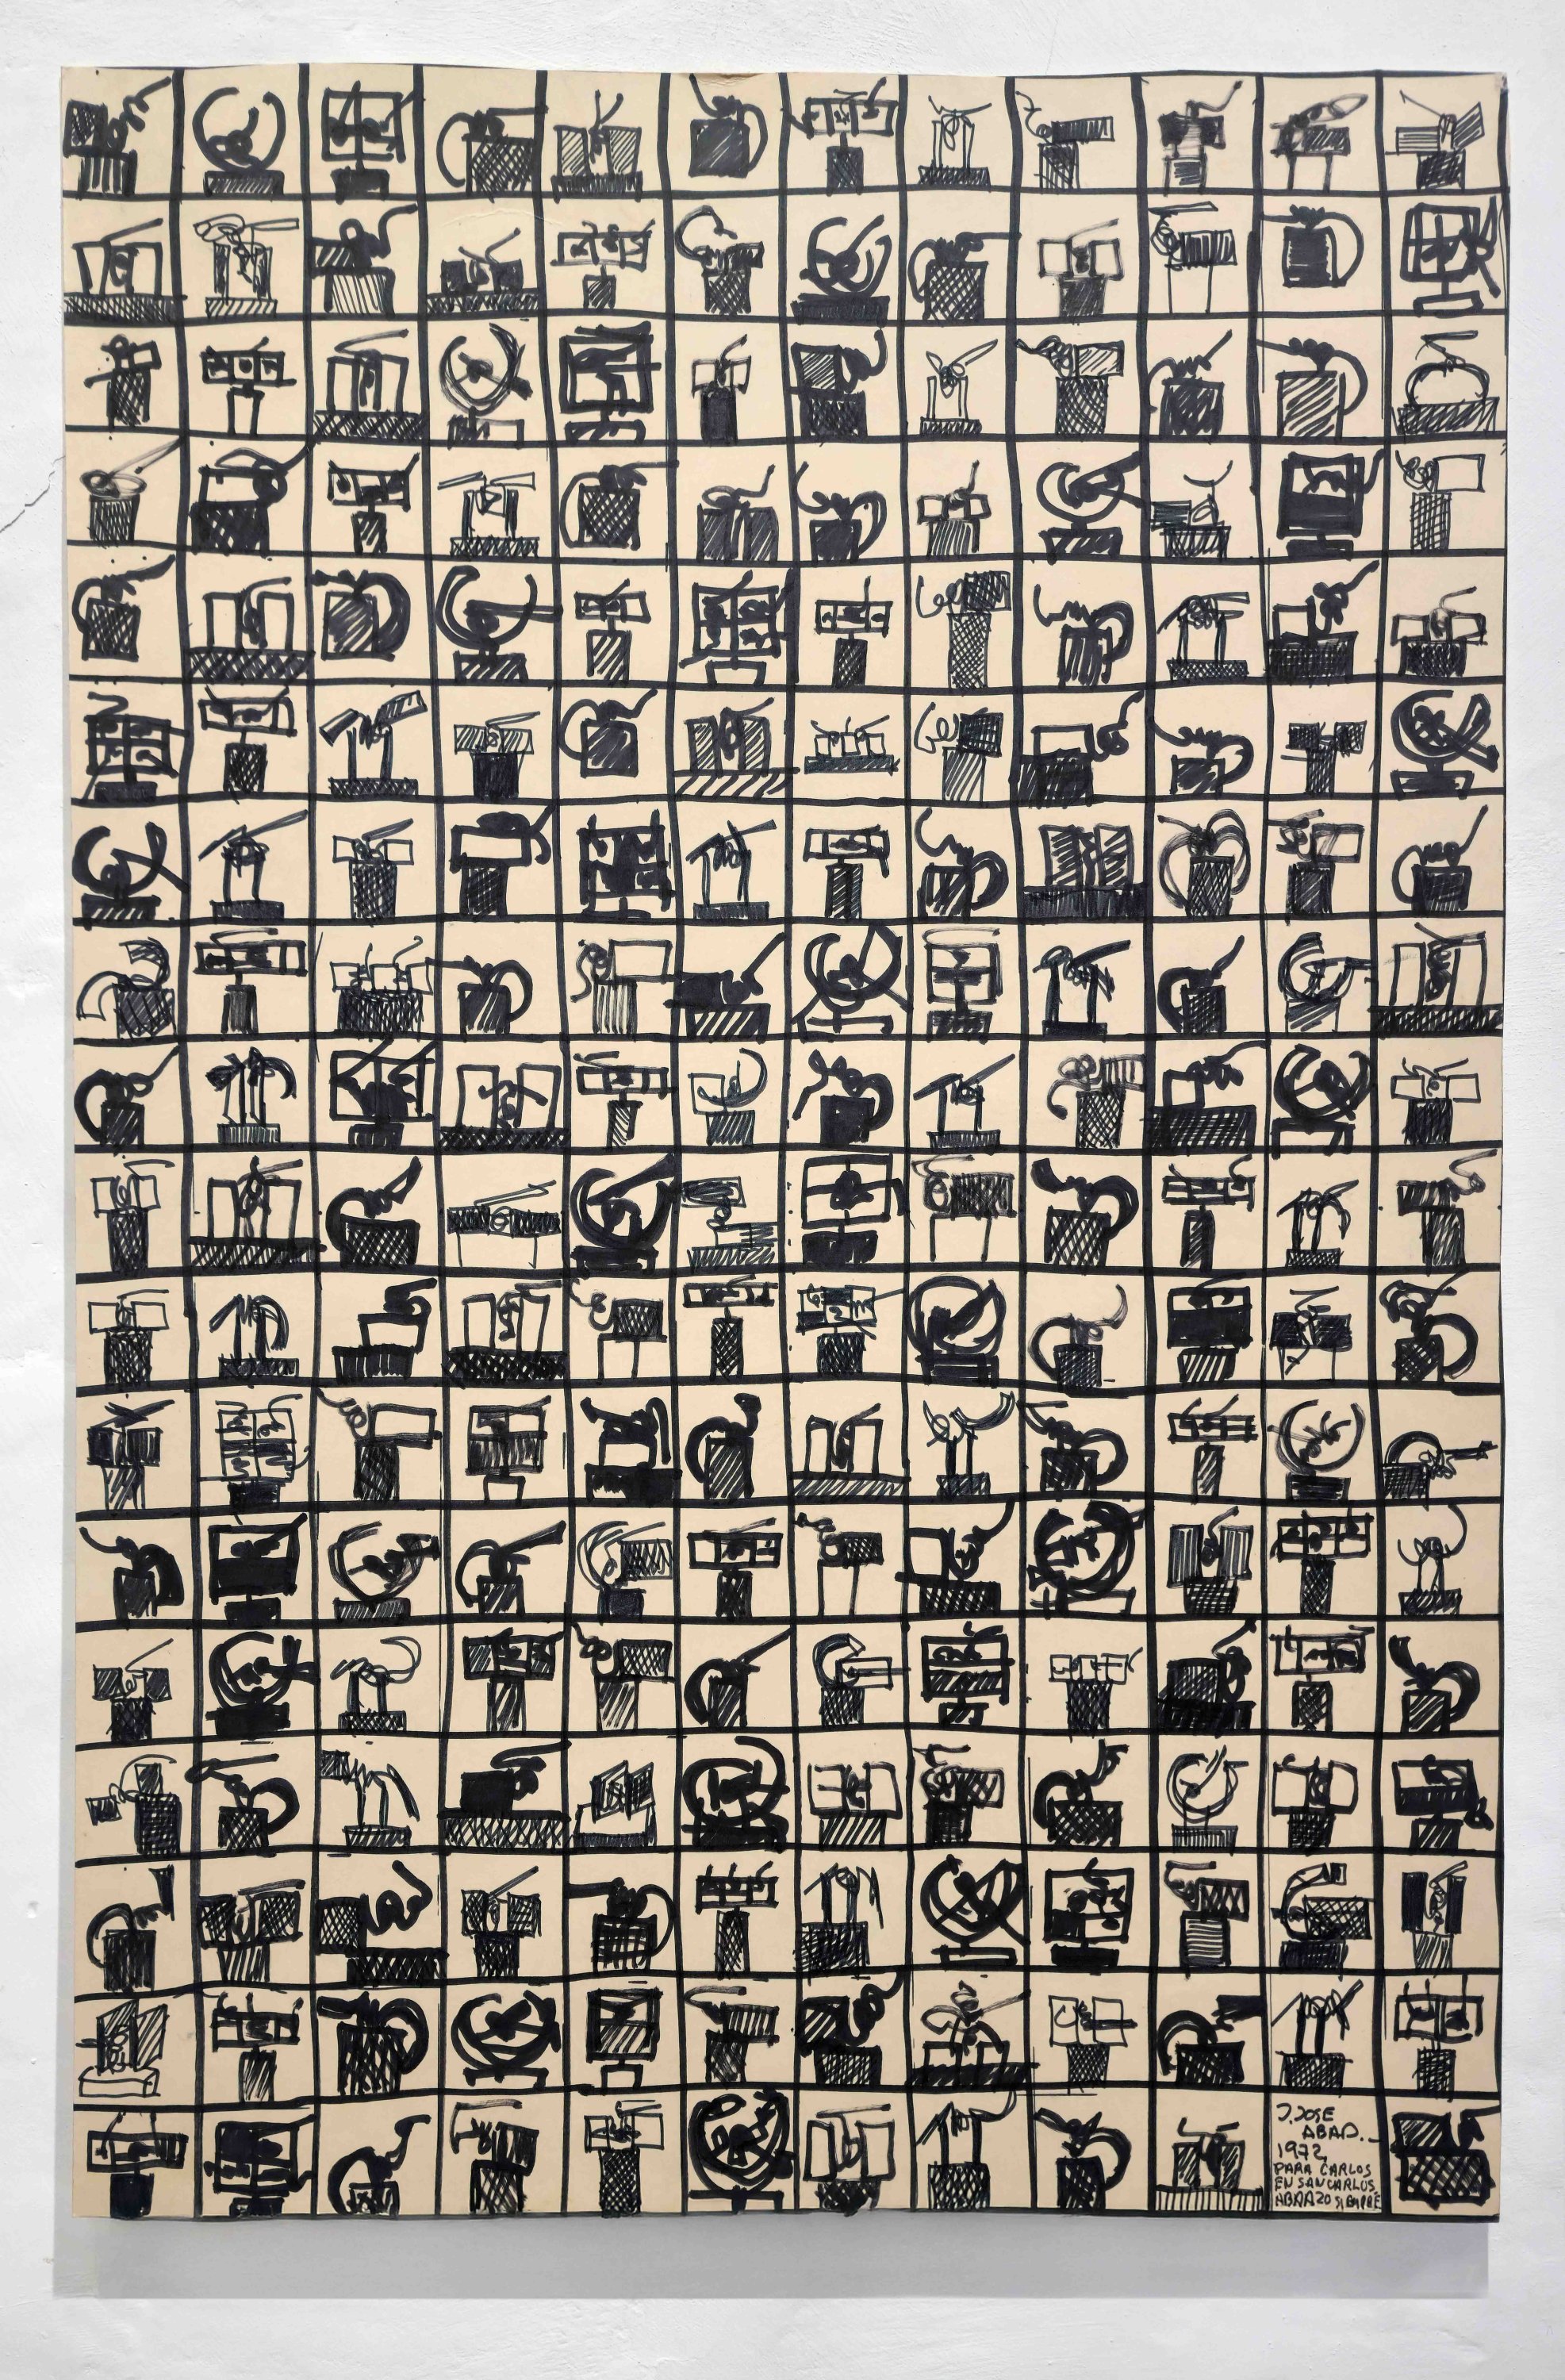 J. JOSE
ABAD.-
1972
PARA CARLOS
EN SAN CARLOS
ABRAZO SIEMPRE